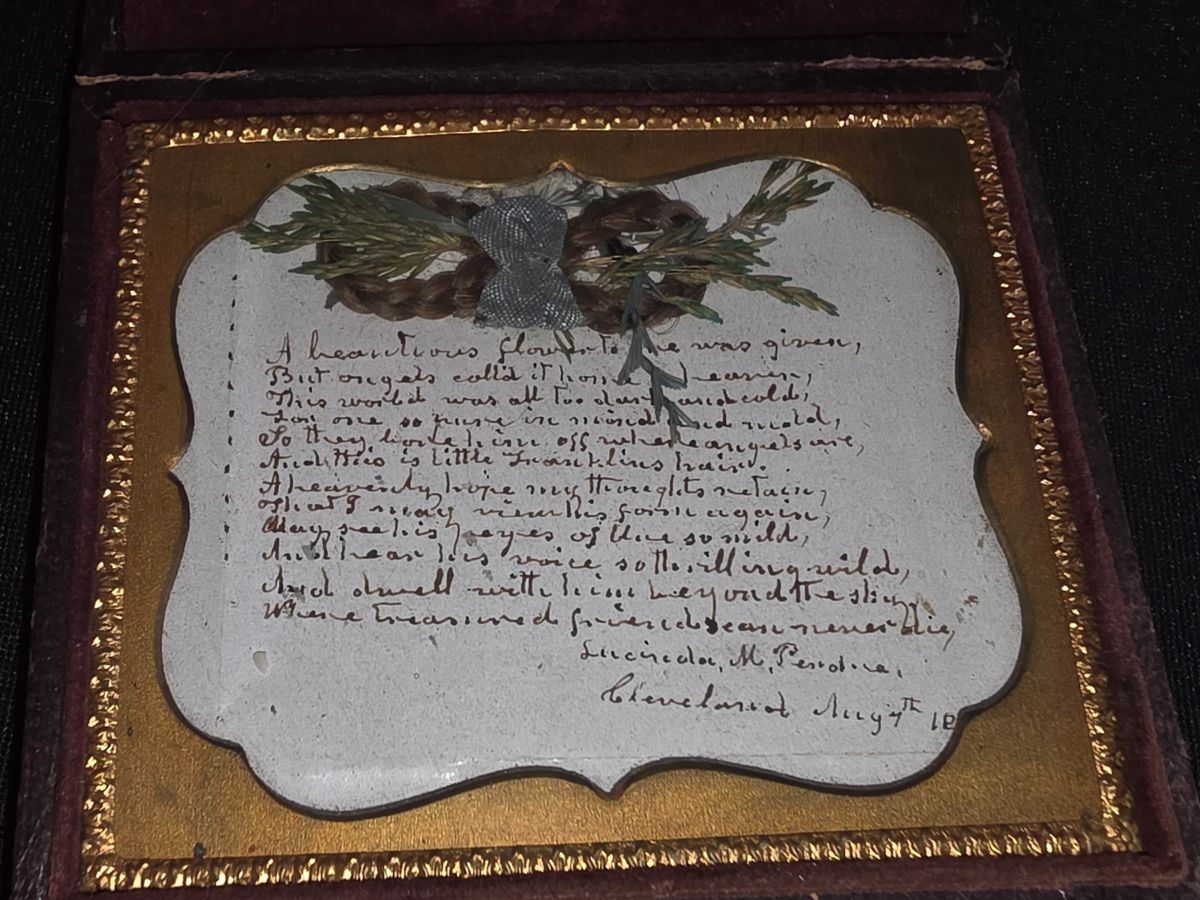 A beautious flower to me was given,
But angels calld it home heaven,
This world was all too dark and cold,
For one so pure in mind and mold,
So they bore him off where angels are,
And this is little Franklins hair.
A heavenly hope my thoughts retain,
That I may view his form again,
May see his eyes of blue so mild,
And hear his voice so thrilling wild,
And dwell with him beyond the sky,
Where treasured friends can never die,
Lucinda, M, Perdue,
Cleveland Aug 7th 18